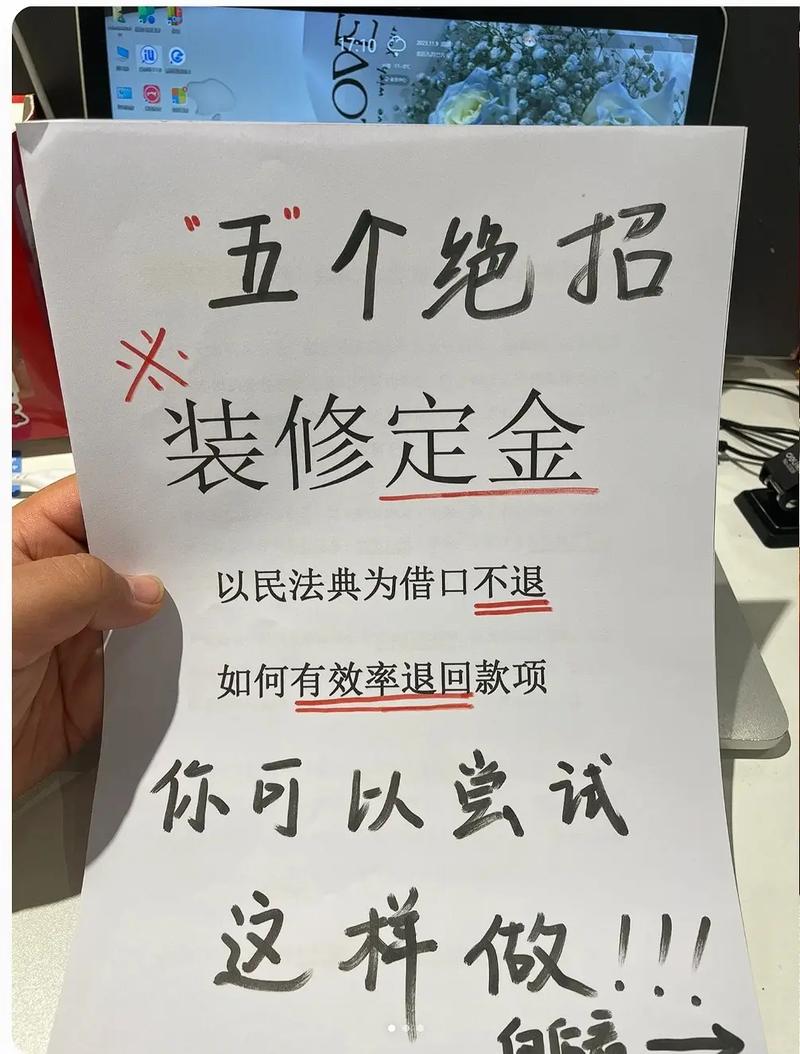 17:10
"五"个绝招
※
装修定金
以民法典为借口不退
如何有效率退回款项
你可以尝试
这样做!!!
向后看